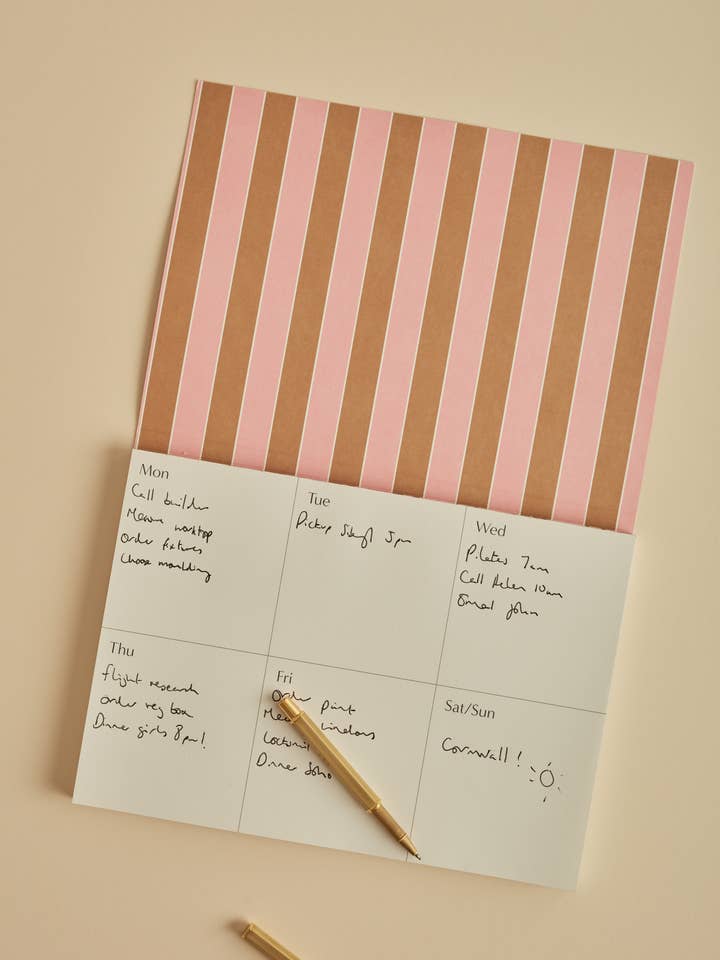 Mon
Call builder
Measure worktop
Order fixtures
Choose moulding
Tue
Pickup 5pm
Wed
Pilates 7am
Call Helen 10am
Email John
Thu
flight research
order veg box
Dinner girls 8pm!
Fri
Order paint
Dinner
Sat/Sun
Cornwall!